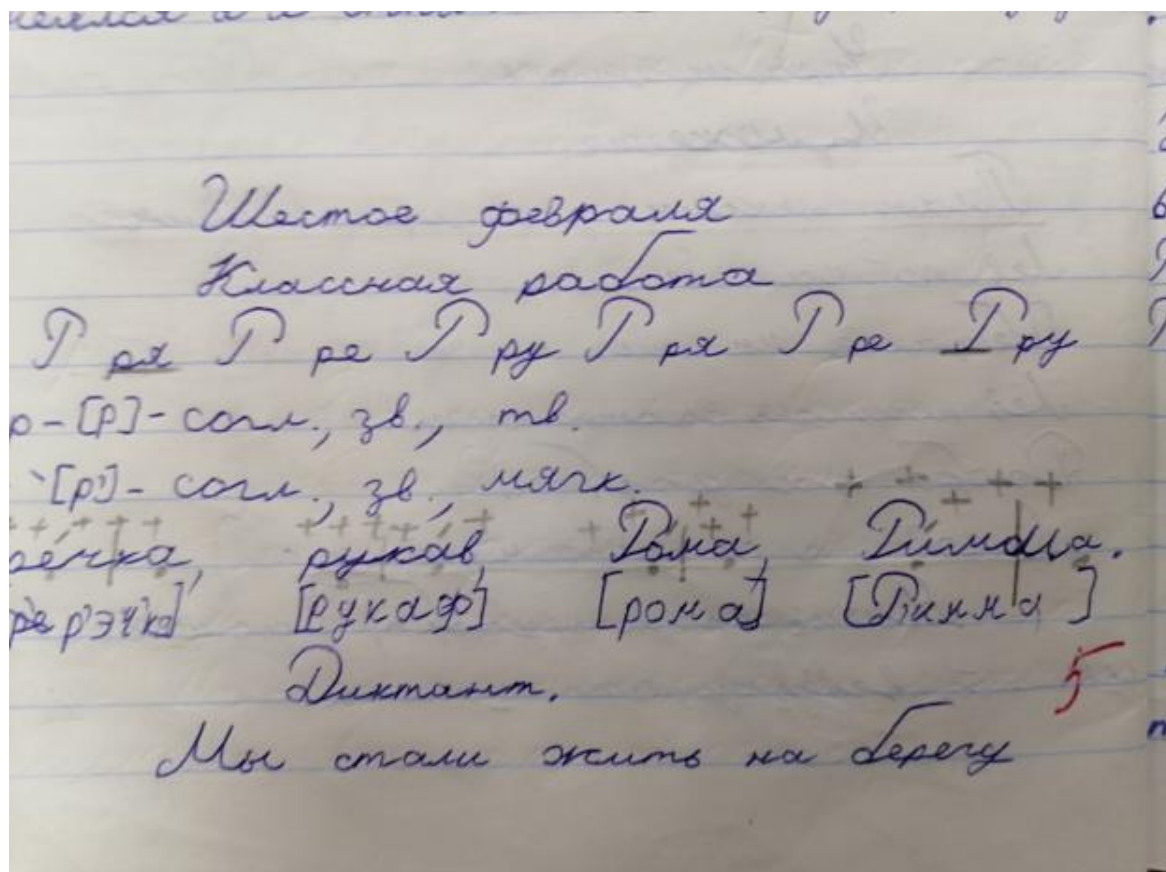 Шестое февраля
Классная работа
Р ря Р ре Р ру Р ря Р ре Р ру
р - [р] - согл., зв., тв.
[р'] - согл., зв., мягк.
речка, рукав, Рома, Римма.
р'эч'ка] [рукаф] [рома] [Римма]
Диктант.
5
Мы стали жить на берегу